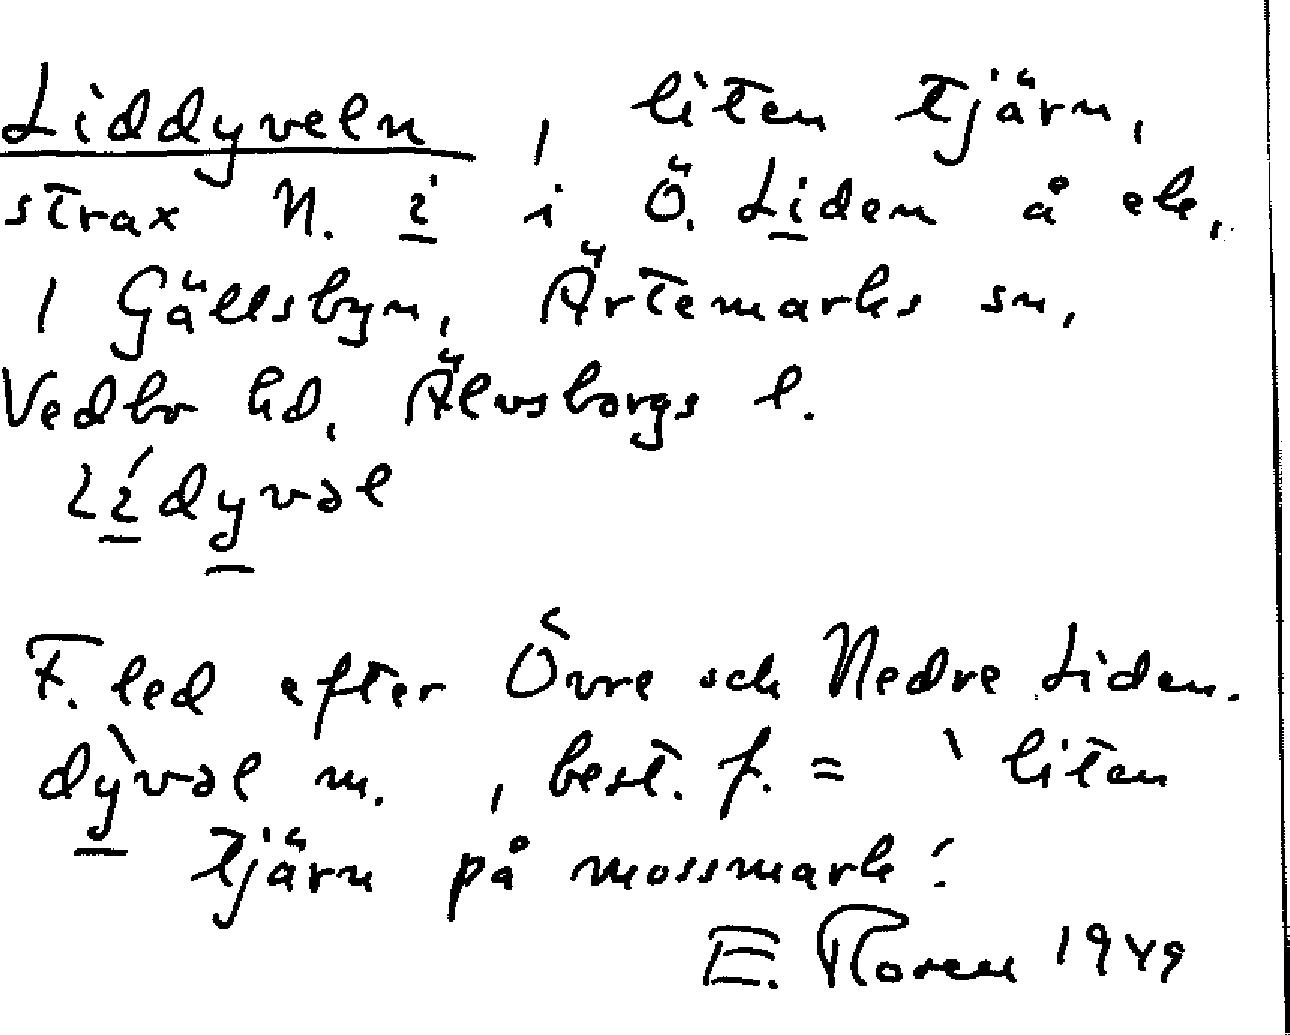 Liddyveln, liten tjärn,
strax N. i i Ö. Liden å ek,
1 Gällsbyn, Ärtemarks sn,
Vedbo hd, Älvsborgs l.
Lídyvəl
F. led efter Övre och Nedre Liden.
dỳvəl m., best. f. = 'liten
tjärn på mossmark'.
E. Noreen 1949